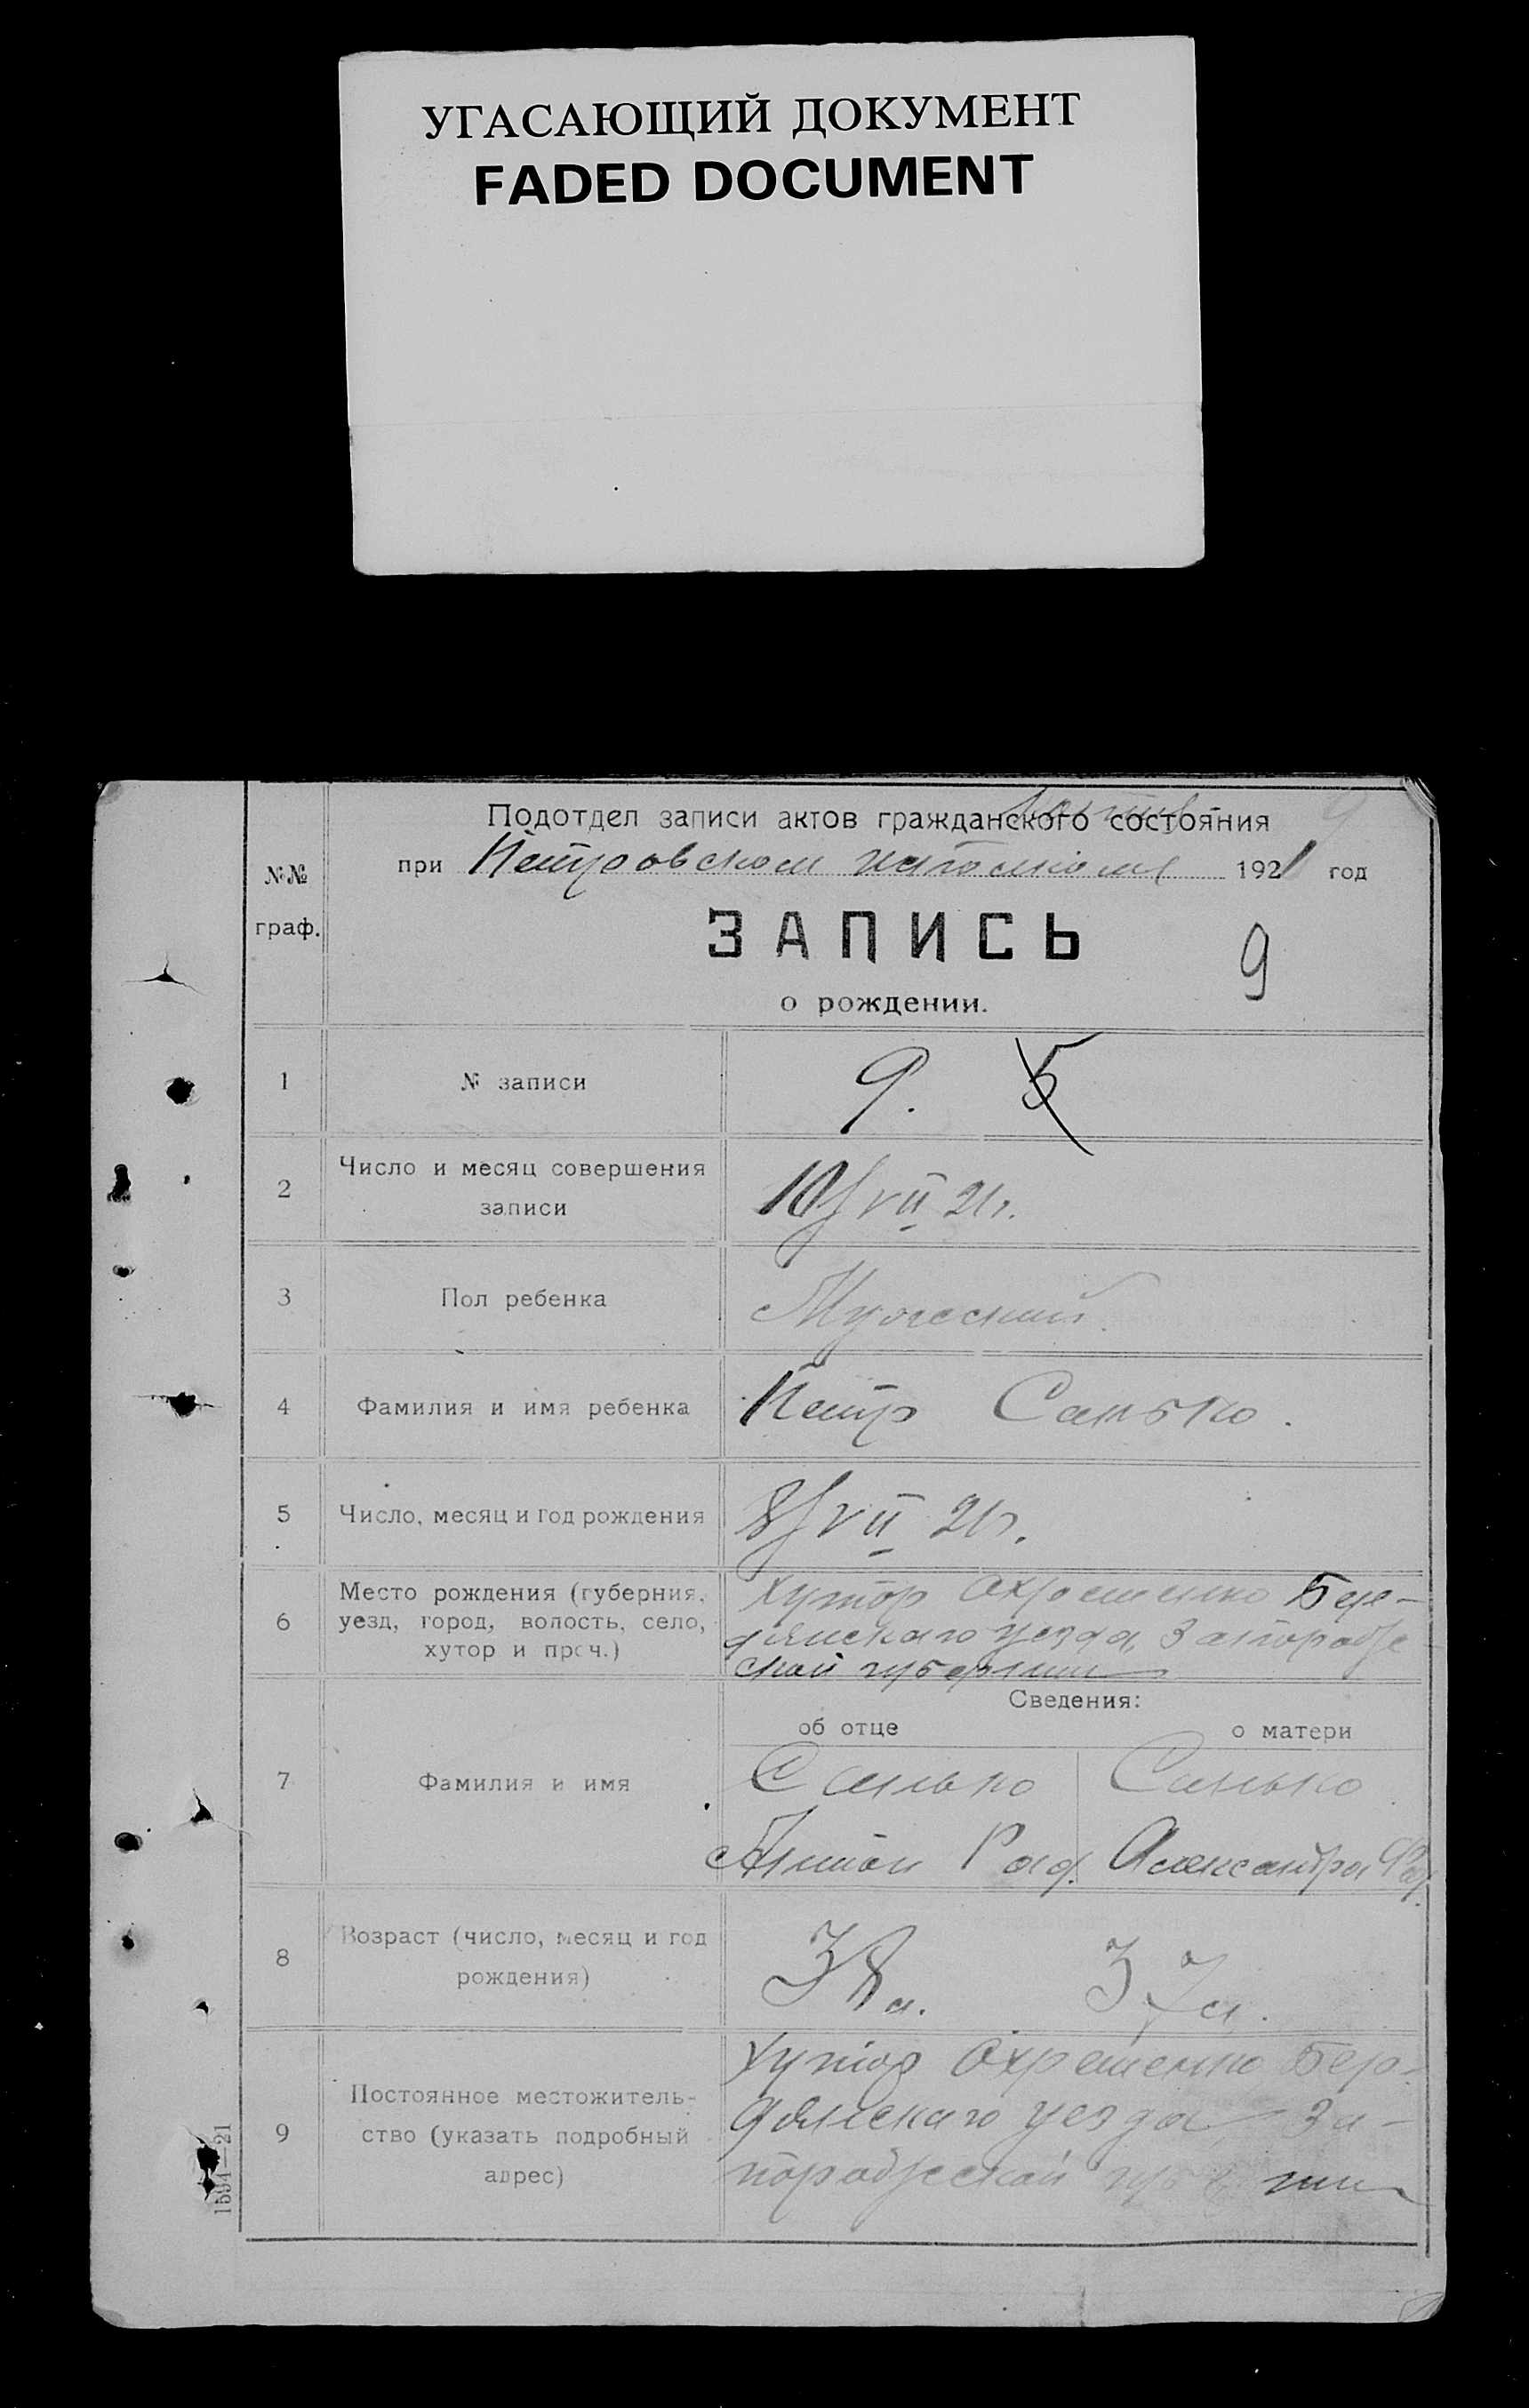 УГАСАЮЩИЙ ДОКУМЕНТ
FADED DOCUMENT
Подотдел записи актов гражданского состояния
при Петровском 1921 год
№№
граф.
ЗАПИСЬ
9
о рождении.
1 № записи 9. 5
2 Число и месяц совершения
записи
10/VII 21г.
3 Пол ребенка Мужеский
4 Фамилия и имя ребенка Петр Санько.
5 Число, месяц и год рождения 8/VII 21г.
6 Место рождения (губерния,
уезд, город, волость, село,
хутор и проч.)
хутор Охременко Бер-
дянскаго уезда, Запорожс
ской губернии
Сведения:
об отце о матери
7 Фамилия и имя
Санько Санько
Антон Александра
8 Возраст (число, месяц и год
рождения)
38 л. 37 л.
9 Постоянное местожитель-
ство (указать подробный
адрес)
хутор Охременко Бер-
дянскаго уезда За-
порожской
1594—21